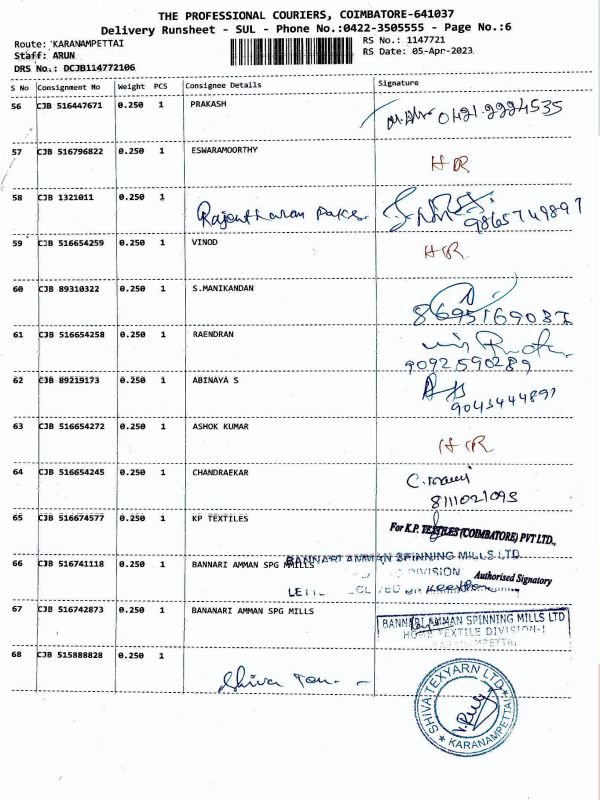 THE PROFESSIONAL COURIERS, COIMBATORE-641037
Delivery Runsheet - SUL - Phone No.:0422-3505555 - Page No.:6
Route: KARANAMPETTAI RS No.: 1147721
Staff: ARUN RS Date: 05-Apr-2023
DRS No.: DCJB114772106
S No Consignment No Weight PCS Consignee Details Signature
56 CJB 516447671 0.250 1 PRAKASH 0421.2224535
57 CJB 516796822 0.250 1 ESWARAMOORTHY HR
58 CJB 1321011 0.250 1 9865749897
59 CJB 516654259 0.250 1 VINOD HR
60 CJB 89310322 0.250 1 S.MANIKANDAN
61 CJB 516654258 0.250 1 RAENDRAN 9092590289
62 CJB 89219173 0.250 1 ABINAYA S 9043444897
63 CJB 516654272 0.250 1 ASHOK KUMAR HR
64 CJB 516654245 0.250 1 CHANDRAEKAR 8111021095
65 CJB 516674577 0.250 1 KP TEXTILES For K.P. TEXTILES (COIMBATORE) PVT LTD.,
66 CJB 516741118 0.250 1 BANNARI AMMAN SPG MILLS BANNARI AMMAN SPINNING MILLS LTD
DIVISION Authorised Signatory
67 CJB 516742873 0.250 1 BANANARI AMMAN SPG MILLS BANNARI AMMAN SPINNING MILLS LTD
HOME TEXTILE DIVISION-I
68 CJB 515888828 0.250 1 Shiva
SHIVA TEXYARN LTD
KARANAMPETTAI